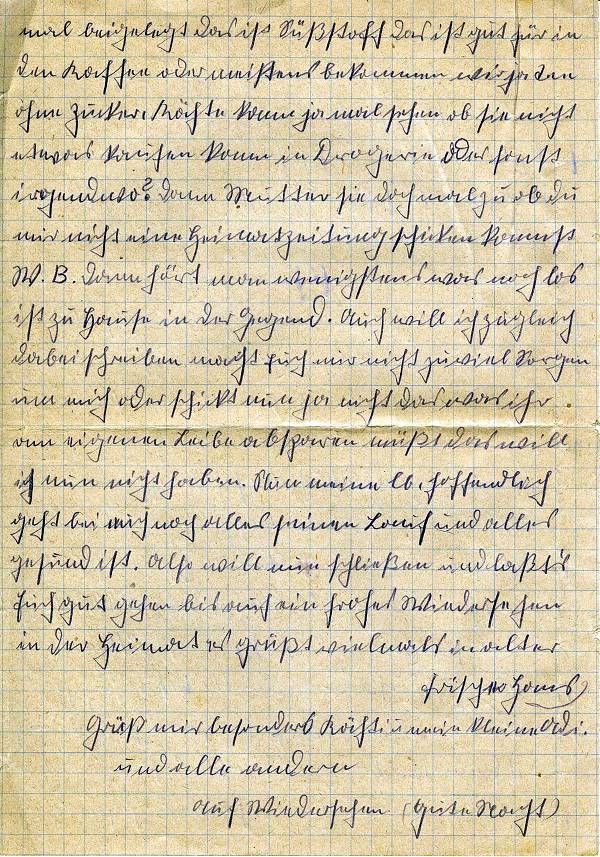 mal beigelegt das ist Süßstoff das ist gut für in
den Kaffee oder meistens bekommen wir ja den
ohne Zucker. Käthe kann ja mal sehen ob sie nicht
etwas kaufen kann in Drogerie oder sonst
irgendwo? Dann Mutter sie doch mal zu ob du
mir nicht eine Heimatzeitung schicken kannst
W. B. dann hört man wenigstens was noch los
ist zu Hause in der Gegend. Auch will ich zugleich
dabei schreiben macht Euch mir nicht zuviel Sorgen
um mich oder schickt nun ja nicht das was ihr
am eigenen Leibe absparen müßt das will
ich nun nicht haben. Nun meine lb. hoffendlich
geht bei euch noch alles seinen Lauf und alles
gesund ist. Also will nun schließen und laßt's
Euch gut gehen bis auf ein frohes Wiedersehen
in der Heimat es grüßt vielmals in alter
frische Hans
Grüß mir besonders Käthi u mein kleine Adi.
und alle andern
Auf Wiedersehen (Gute Nacht)